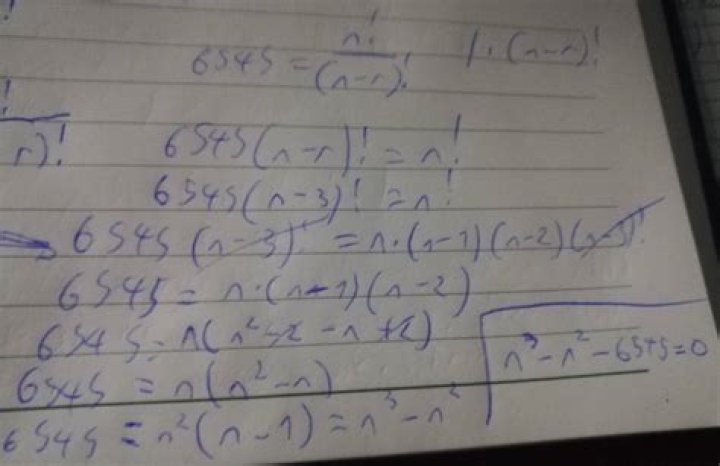 6545 = n!/(n-r)! / · (n-r)!
!
r)!
6545(n-r)! = n!
6545(n-3)! = n!
6545(n-3)! = n·(n-1)(n-2)(n-3)!
6545 = n·(n-1)(n-2)
6545 = n(n²-2-n+2)
6545 = n(n²-n)
6545 = n²(n-1) = n³-n²
n³-n²-6545=0